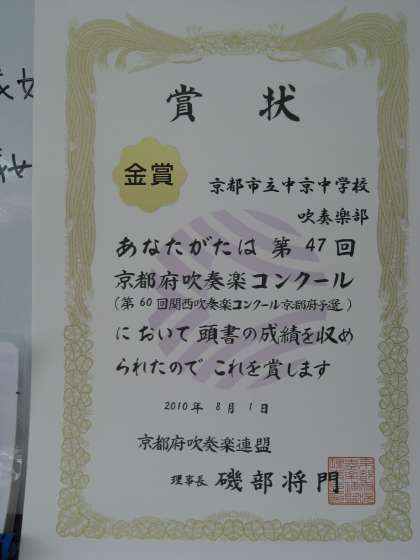 賞状
金賞
京都市立中京中学校
吹奏楽部
あなたがたは第47回
京都府吹奏楽コンクール
(第60回関西吹奏楽コンクール京都府予選)
において頭書の成績を収め
られたのでこれを賞します
2010年8月1日
京都府吹奏楽連盟
理事長 磯部将門